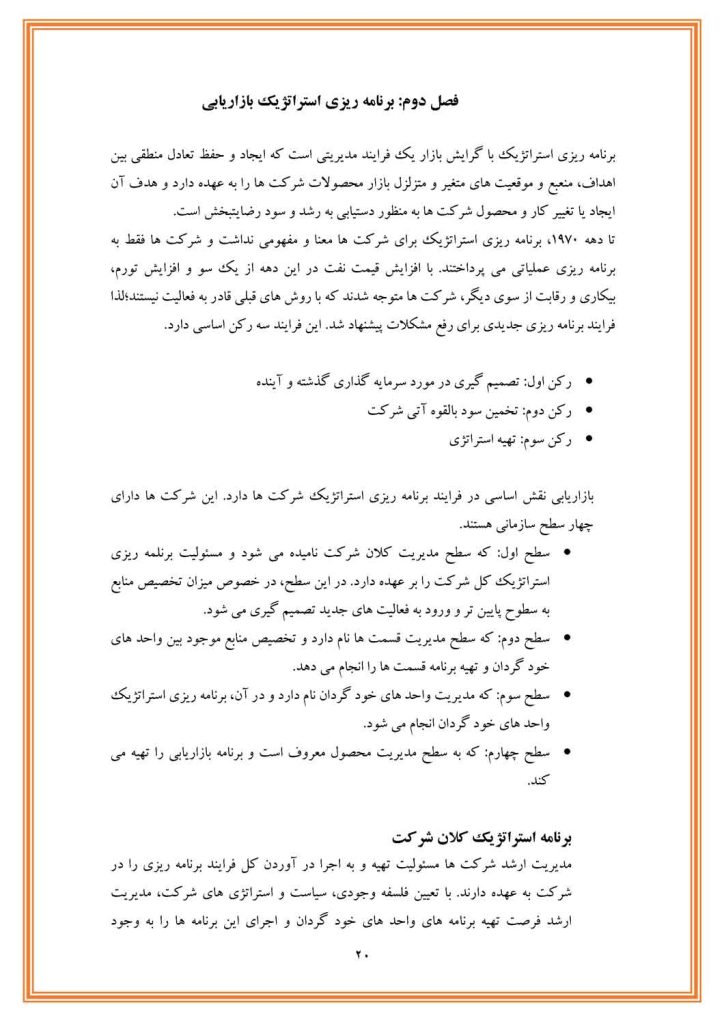 فصل دوم: برنامه ریزی استراتژیک بازاریابی
برنامه ریزی استراتژیک با گرایش بازار یک فرایند مدیریتی است که ایجاد و حفظ تعادل منطقی بین
اهداف، منعبع و موقعیت های متغیر و متزلزل بازار محصولات شرکت ها را به عهده دارد و هدف آن
ایجاد یا تغییر کار و محصول شرکت ها به منظور دستیابی به رشد و سود رضایتبخش است.
تا دهه ۱۹۷۰، برنامه ریزی استراتژیک برای شرکت ها معنا و مفهومی نداشت و شرکت ها فقط به
برنامه ریزی عملیاتی می پرداختند. با افزایش قیمت نفت در این دهه از یک سو و افزایش تورم،
بیکاری و رقابت از سوی دیگر، شرکت ها متوجه شدند که با روش های قبلی قادر به فعالیت نیستند؛لذا
فرایند برنامه ریزی جدیدی برای رفع مشکلات پیشنهاد شد. این فرایند سه رکن اساسی دارد.
• رکن اول: تصمیم گیری در مورد سرمایه گذاری گذشته و آینده
• رکن دوم: تخمین سود بالقوه آتی شرکت
• رکن سوم: تهیه استراتژی
بازاریابی نقش اساسی در فرایند برنامه ریزی استراتژیک شرکت ها دارد. این شرکت ها دارای
چهار سطح سازمانی هستند.
• سطح اول: که سطح مدیریت کلان شرکت نامیده می شود و مسئولیت برنلمه ریزی
استراتژیک کل شرکت را بر عهده دارد. در این سطح، در خصوص میزان تخصیص منابع
به سطوح پایین تر و ورود به فعالیت های جدید تصمیم گیری می شود.
• سطح دوم: که سطح مدیریت قسمت ها نام دارد و تخصیص منابع موجود بین واحد های
خود گردان و تهیه برنامه قسمت ها را انجام می دهد.
• سطح سوم: که مدیریت واحد های خود گردان نام دارد و در آن، برنامه ریزی استراتژیک
واحد های خود گردان انجام می شود.
• سطح چهارم: که به سطح مدیریت محصول معروف است و برنامه بازاریابی را تهیه می
کند.
برنامه استراتژیک کلان شرکت
مدیریت ارشد شرکت ها مسئولیت تهیه و به اجرا در آوردن کل فرایند برنامه ریزی را در
شرکت به عهده دارند. با تعیین فلسفه وجودی، سیاست و استراتژی های شرکت، مدیریت
ارشد فرصت تهیه برنامه های واحد های خود گردان و اجرای این برنامه ها را به وجود
۲۰